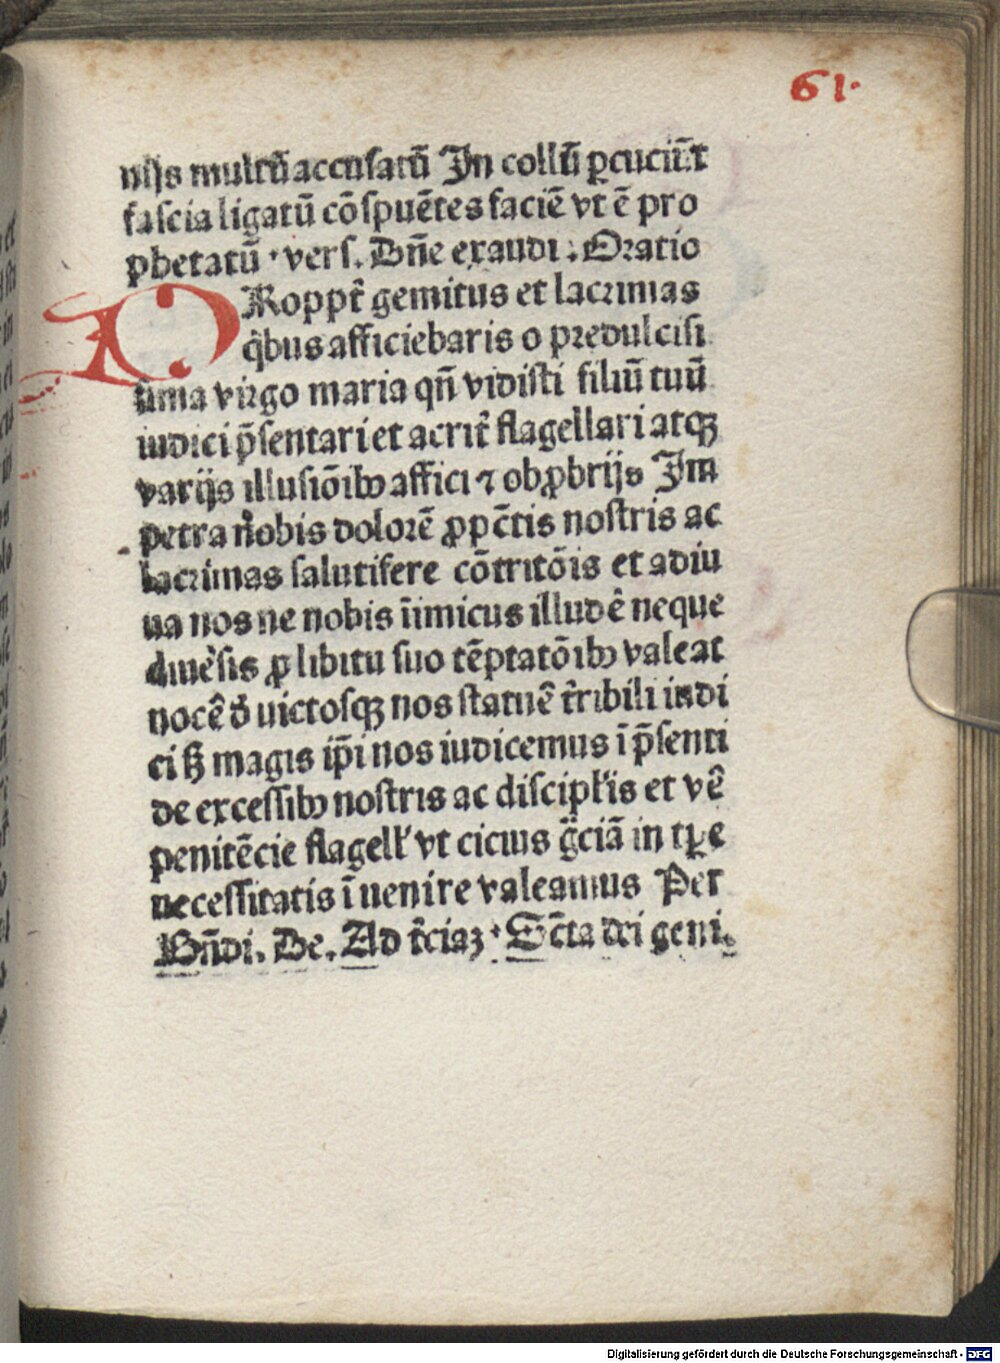 61.
nijs multū accusatū In collū ꝑcuciūt
fascia ligatū cōspuētes faciē vt ē pro
phetatū · vers. Dn̄e exaudi : Oratio
PRoppt̄ gemitus et lacrimas
q̄bus afficiebaris o predulcisi
ūma virgo maria qn̄ vidisti filiū tuū
iudici p̄sentari et acrit̄ flagellari atqꝫ
varijs illusiōibꝰ affici ⁊ obꝓbrijs Im
petra nobis dolorē ꝓ pct̄is nostris ac
lacrimas salutifere cōtritōis et adiu
ua nos ne nobis īimicus illudē neque
ꝓ libitu suo tēptatōibꝰ valeat
nocē uictosqꝫ nos statuē t̄ribili iudi
ci sꝫ magis ip̄i nos iudicemus ī p̄senti
de excessibꝰ nostris ac discipl'is et vē
penitēcie flagell' vt cicius gr̄ciā in tp̄e
necessitatis īuenire valeamus Per
Bn̄di. De. Ad t̄ciaꝫ · Sc̄ta dei geni.
Digitalisierung gefördert durch die Deutsche Forschungsgemeinschaft - DFG